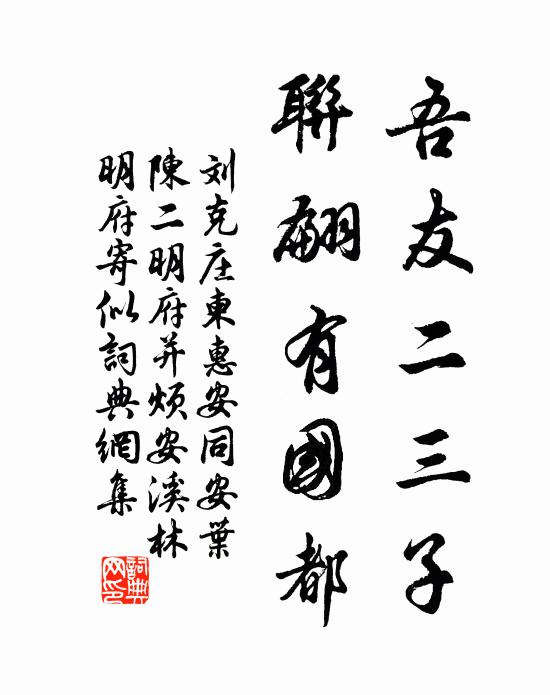 吾友二三子
聯翩有國都
刘克庄東惠安同安葉
陳二明府并煩安溪林
明府寄似詞典網集
詞典網印